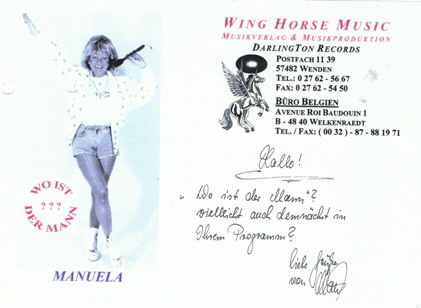 WING HORSE MUSIC
MUSIKVERLAG & MUSIKPRODUKTION
DARLINGTON RECORDS
POSTFACH 11 39
57482 WENDEN
TEL.: 0 27 62 - 56 67
FAX: 0 27 62 - 54 50
BÜRO BELGIEN
AVENUE ROI BAUDOUIN 1
B - 48 40 WELKENRAEDT
TEL. / FAX: ( 00 32 ) - 87 - 88 19 71
WO IST
???
DER MANN
MANUELA
Hallo!
"Wo ist der Mann"?
vielleicht auch demnächst in
Ihrem Programm?
liebe Grüße
von